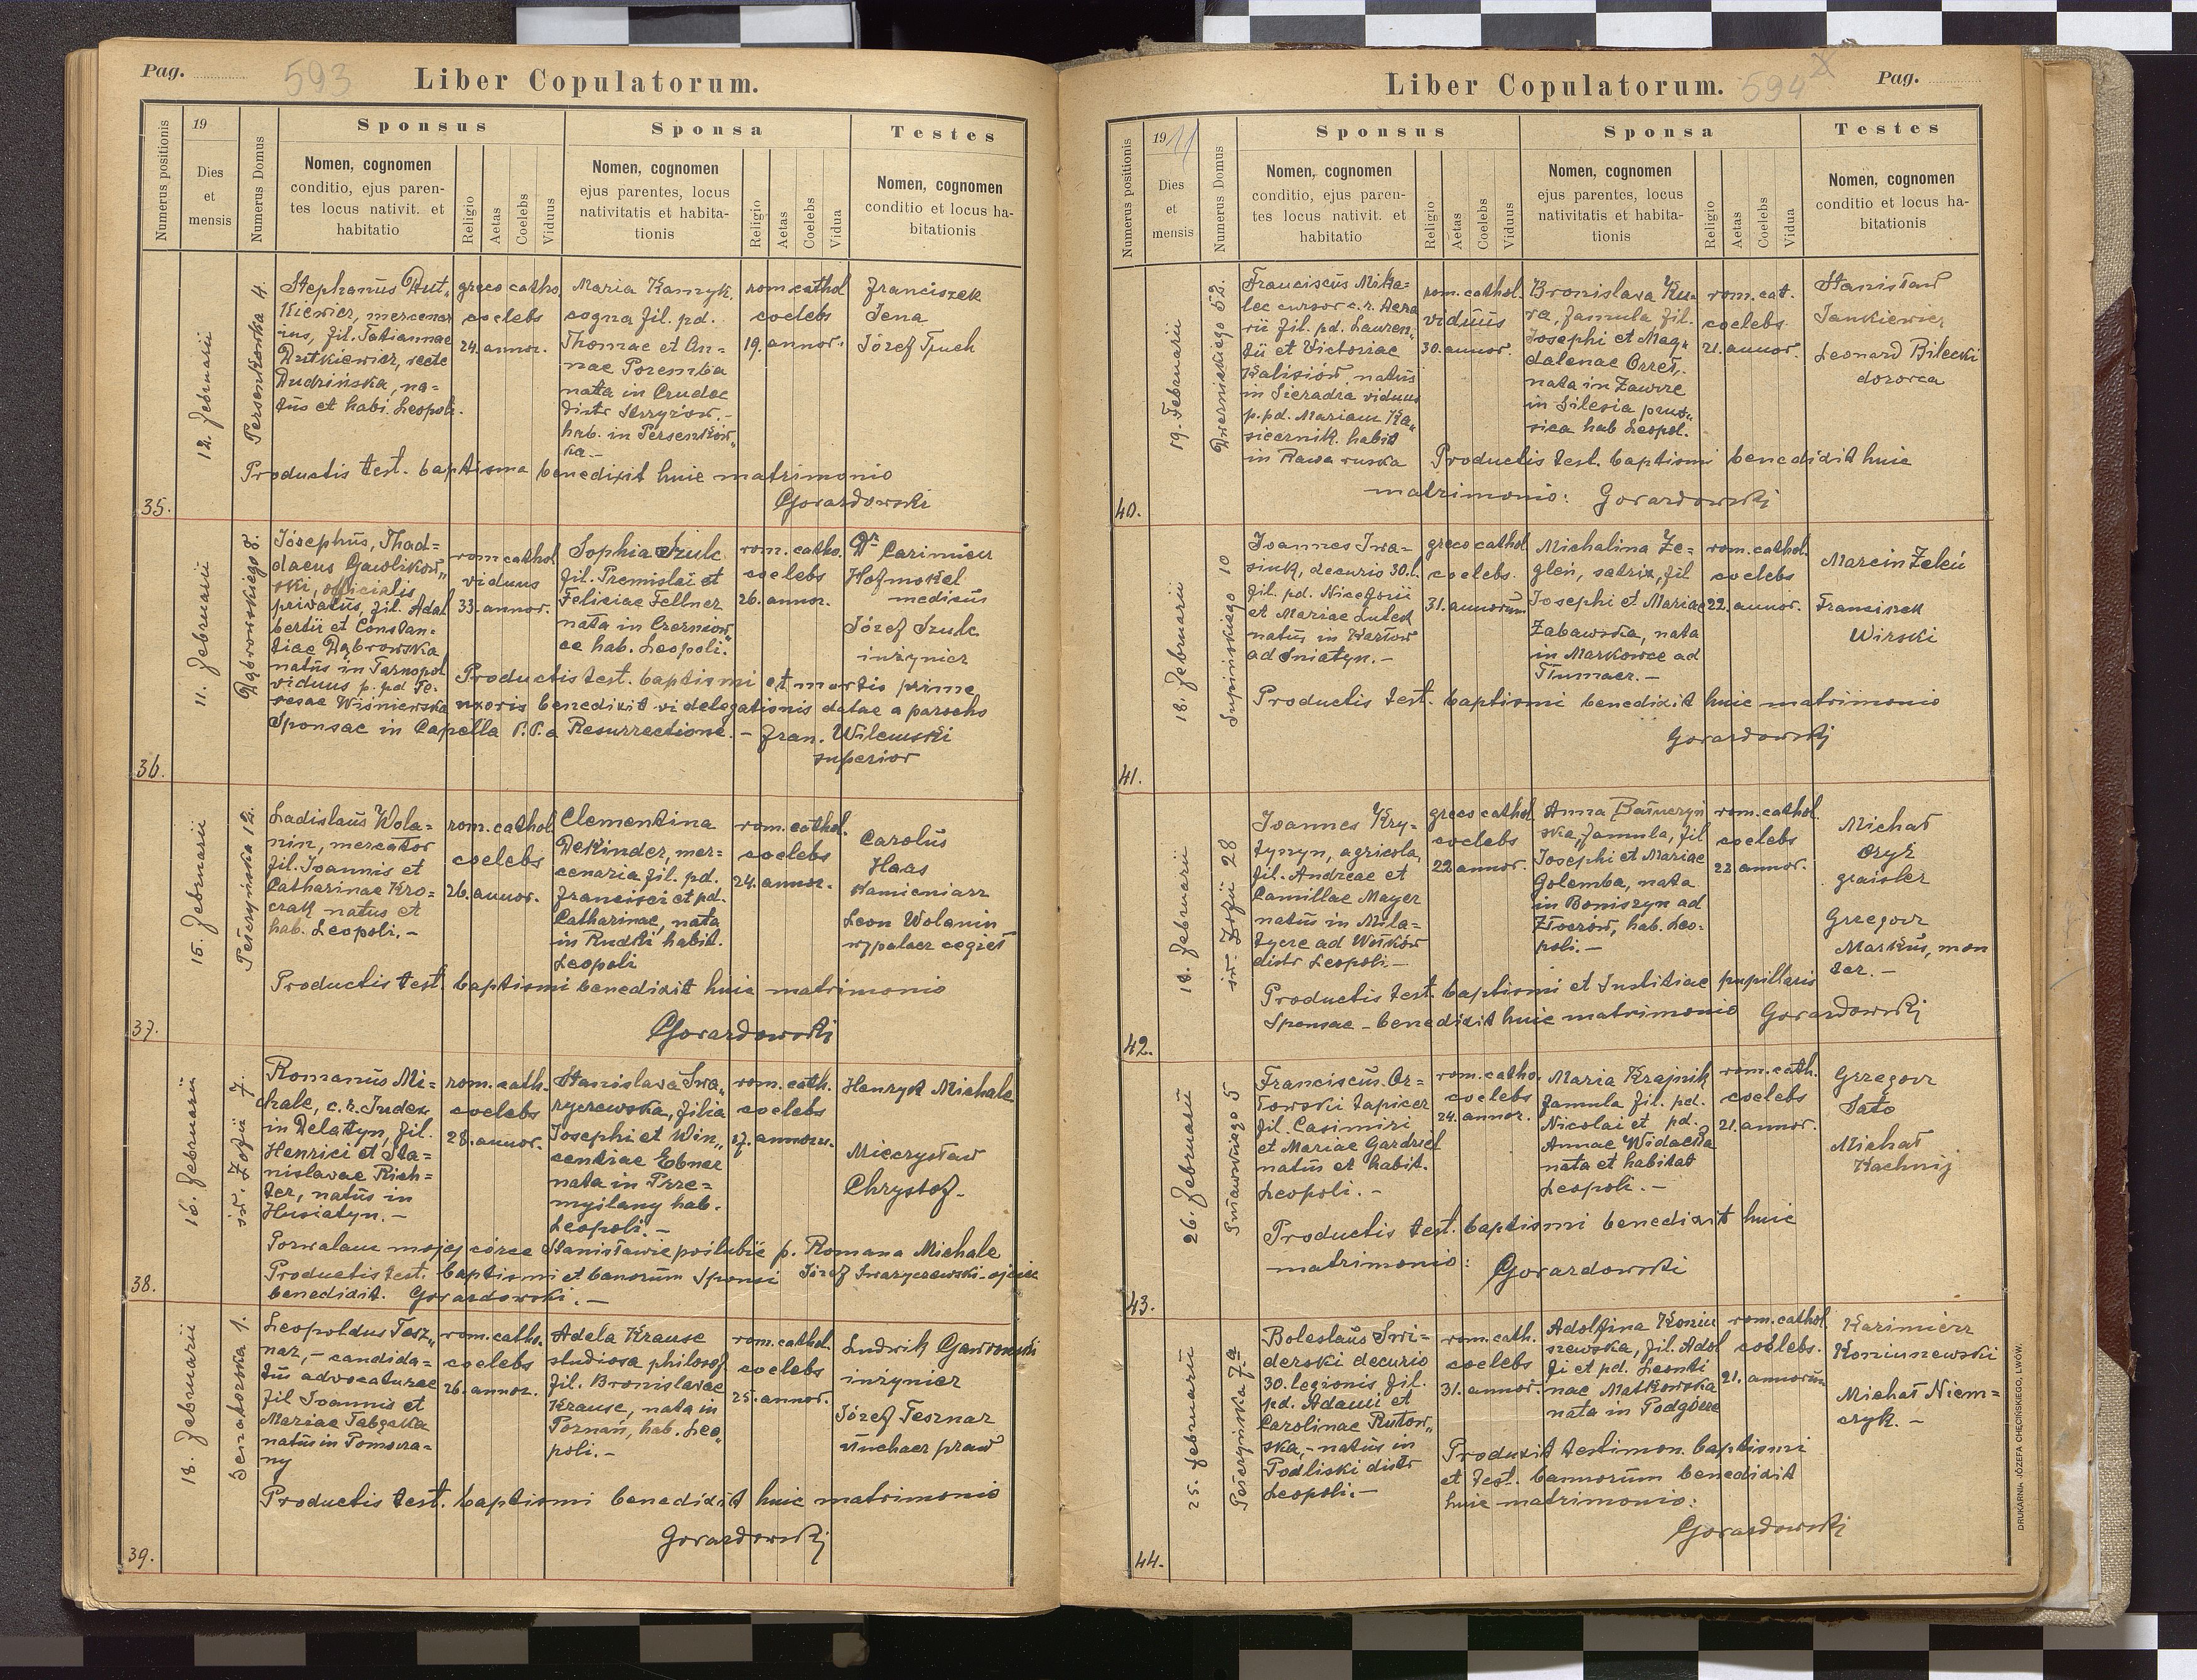 Pag.
593
Liber Copulatorum.
Numerus positionis
19
Dies
et
mensis
Numerus Domus
Sponsus
Nomen, cognomen
conditio, ejus paren-
tes locus nativit. et
habitatio
Religio
Aetas
Coelebs
Viduus
Sponsa
Nomen, cognomen
ejus parentes, locus
nativitatis et habita-
tionis
Religio
Aetas
Coelebs
Vidua
Testes
Nomen, cognomen
conditio et locus ha-
bitationis
35.
12. Februarii
Persenkowka 4.
Stephanus Dut„
kiewicz, mercenar
ius, fil. Tatiannae
Dutkiewicz, recte
Dudzińska, na=
tus et habi. Leopoli.
greco catho.
coelebs
24. annor.
Maria Kamyk,
cogna fil. pd.
Thomae et An=
nae Poremba
nata in
distr
hab. in Persenków„
ka.-
rom. cathol
coelebs
19. annor.
Franciszek
Jena
Józef
Productis test. baptisma benedixit huic matrimonio
Gorazdowski
36.
11. Februarii
Dąbrowskiego 8.
Josephus, Thad=
daeus Gawlikow„
ski, officialis
privatus, fil. Adal
bertii et Constan=
tiae Dąbrowska
natus in Tarnopol
viduus p. pd Te=
resae Wiśniewska
rom cathol
viduus
33. annor.
Sophia Szulc
fil. Premislai et
Feliciae Fellner
nata in Czerniow„
ce hab. Leopoli.
rom. catho.
coelebs
26. annor.
Dr Cazimierz
Hofmokel
medicus
Józef Szulc
inżynier
Productis test. baptismi et mortis prime
uxoris benedixit vi delegationis datae a parocho
Sponsae in Capella P.P. a Resurrectione. - Fran. Wilemski
superior
37.
15. Februarii
Pełczyńska 12.
Ladislaus Wola=
nin, mercator
fil. Ioannis et
Catharinae Kro=
czak natus et
hab. Leopoli.-
rom. cathol
coelebs
26. annor.
Clementina
Dekinder, mer=
cenaria fil. pd.
Francisci et pd.
Catharinae, nata
in Rudki habit.
Leopoli
rom. cathol.
coelebs
24. annor.
Carolus
Haas
Kamieniarz
Leon Wolanin
wypalacz cegieł
Productis test. baptismi benedixit huic matrimonio
Gorazdowski
38.
16. Februarii
św. Zofii 7.
Romanus Mi=
chale, c. r. Iudex
in Delatyn, fil.
Henrici et Sta=
nislavae Rich=
ter, natus in
Husiatyn.-
rom. cath.
coelebs
28. annor.
Stanislava Swa„
ryczewska, filia
Iosephi et Win„
centiae Ebner
nata in Prze=
myślany hab.
Leopoli.-
rom. cath.
coelebs
17. annor.
Henryk Michale
Mieczysław
Chrystof.
Pozwalam mojej córce Stanisławie poślubić p. Romana Michale
Productis test. baptismi et banorum Sponsi Józef Swaryczewski - ojciec
benedixit. Gorazdowski.-
39.
18. Februarii
Senatorska 1.
Leopoldus Tesz„
nar, - candida=
tus advocaturae
fil Ioannis et
Mariae
natus in Pomorza=
ny
rom. catho.
coelebs
26. annor.
Adela Krause
studiosa philosof
fil. Bronislavae
Krause, nata in
Poznań, hab. Leo„
poli.-
rom. cathol.
coelebs
25. annor.
Ludwik Gawroński
inżynier
Józef Tesznar
słuchacz praw
Productis test. baptismi benedixit huic matrimonio
Gorazdowski
Liber Copulatorum.
594
Pag.
Numerus positionis
1911
Dies
et
mensis
Numerus Domus
Sponsus
Nomen, cognomen
conditio, ejus paren-
tes locus nativit. et
habitatio
Religio
Aetas
Coelebs
Viduus
Sponsa
Nomen, cognomen
ejus parentes, locus
nativitatis et habita-
tionis
Religio
Aetas
Coelebs
Vidua
Testes
Nomen, cognomen
conditio et locus ha-
bitationis
40.
19. Februarii
Dwernickiego 52.
Franciscus Mika=
lec cursor c. r. Aera
rii fil. pd. Lauren„
tii et Victoriae
natus
in Sieradza viduus
p. pd. Mariam Ka„
siczernik. habit
in Rawa ruska
rom. cathol.
viduus
30. annor.
Bronislava Ku=
ra, famula, fil.
Iosephi et Mag„
dalenae Orzeł,
nata in
in Silesia prus„
sica hab Leopol.
rom. cat.
coelebs.
21. annor.
Stanisław
Jankiewicz
Leonard Bilecki
dozorca
Productis test. baptismi benedixit huic
matrimonio: Gorazdowski
41.
18. Februarii
Supińskiego 10
Ioannes Iwa=
siuk, decurio 30. l.
fil. pd. Niceforii
et Mariae Luted
natus in
ad Sniatyn.-
greco cathol
coelebs.
31. annorum
Michalina Że=
gleń, satrix, fil
Iosephi et Mariae
Zabawska, nata
in Markowce ad
Tłumacz.-
rom. cathol.
coelebs
22. annor.
Marcin
Franciszek
Wirski
Productis test. baptismi benedixit huic matrimonio
Gorazdowski
42.
18. Februarii
św. Zofii 28
Ioannes Kry=
tynyn, agricola,
fil. Andreae et
Camillae Mayer
natus in Mila=
tycze ad
distr Leopoli.-
greco cathol
coelebs
22 annor.
Anna
ska, famula, fil
Iosephi et Mariae
Golemba, nata
in Boniszyn ad
Złoczów, hab. Leo=
poli.-
rom. cathol.
coelebs
22. annor.
Michał
graisler
Grzegorz
Markus, mon
ter.-
Productis test. baptismi et Institiae pupillaris
Sponsae - benedixit huic matrimonio Gorazdowski
43.
26. Februarii
5
Franciscus Or=
łowski tapicer
fil. Casimiri
et Mariae
natus et habit.
Leopoli.-
rom. catho.
coelebs
24. annor.
Maria Krajnik
famula fil. pd.
Nicolai et pd.
Annae
nata et habitat
Leopoli.-
rom. cath.
coelebs
21. annor.
Grzegorz
Sato
Michał
Productis test. baptismi benedixit huic
matrimonio: Gorazdowski
44.
25. Februarii
Pełczyńska 7a
Boleslaus Swi=
derski decurio
30. legionis fil.
pd. Adami et
Carolinae Rutow„
ska, - natus in
Podliski distr
Leopoli.-
rom. cath.
coelebs
31. annor.
Adolfina Koniu
szewska, fil. Adol
fi et pd. Leonti
nae Małkowska
nata in Podgórze
rom. cathol.
coelebs.
21. annorum
Kazimierz
Koniuszewski
Michał Niem=
czyk.-
Produxit testimon. baptismi
et test. bannorum benedixit
huic matrimonio:
Gorazdowski
DRUKARNIA JÓZEFA CHĘCIŃSKIEGO, LWÓW.